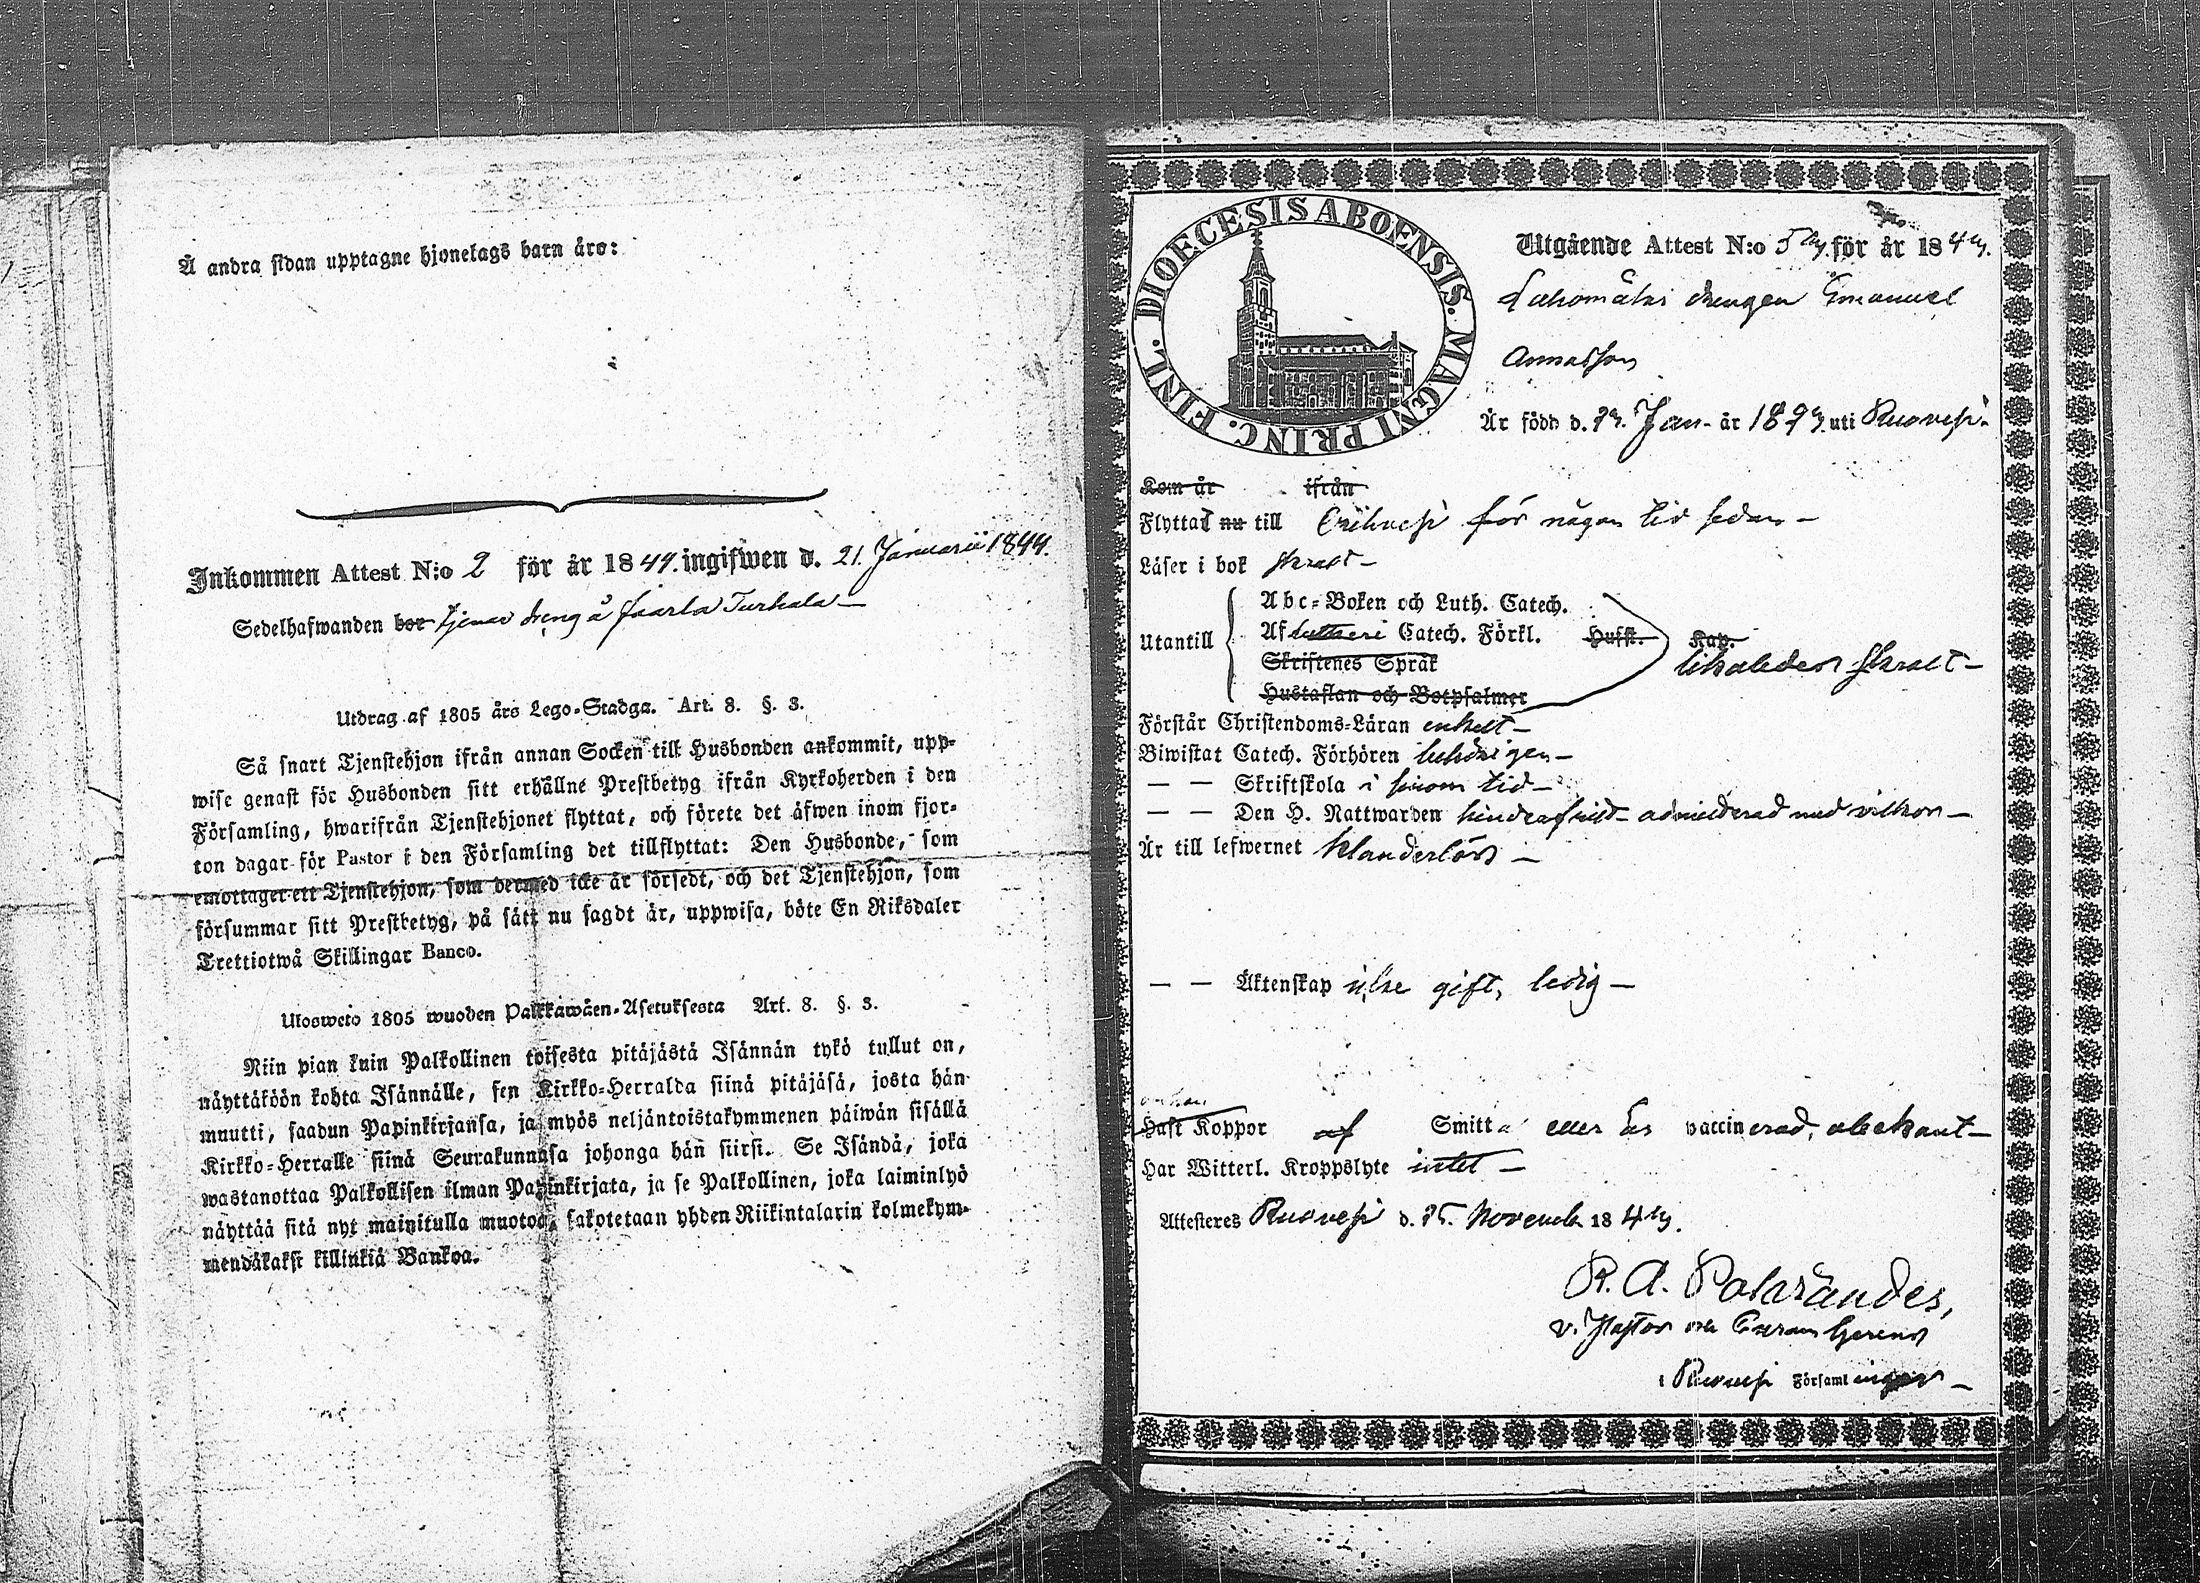 Å andra sidan upptagne hjonelags barn äro:
Inkommen Attest N:o 2 för år 1844. ingifwen d. 21. Januarii 1844.
Sedelhafwanden bor tjenar dräng å Turhala —
Utdrag af 1805 års Lego-Stadga. Art. 8. §. 3.
Så snart Tjenstehjon ifrån annan Socken till Husbonden ankommit, upp-
wise genast för Husbonden sitt erhållne Prestbetyg ifrån Kyrkoherden i den
Församling, hwarifrån Tjenstehjonet flyttat, och förete det äfwen inom fjor-
ton dagar för Pastor i den Församling det tillflyttat: Den Husbonde, som
emottager ett Tjenstehjon, som dermed icke är försedt, och det Tjenstehjon, som
försummar sitt Prestbetyg, på sätt nu sagdt är, uppwisa, böte En Riksdaler
Trettiotwå Skillingar Banco.
Ulosweto 1805 wuoden Palkkawäen-Asetuksesta Art. 8. §. 3.
Niin pian kuin Palkollinen toisesta pitäjästä Isännän tykö tullut on,
näyttäköön kohta Isännälle, sen Kirkko-Herralda siinä pitäjäsä, josta hän
muutti, saadun Papinkirjansa, ja myös neljäntoistakymmenen päiwän sisällä
Kirkko-Herralle siinä Seurakunnasa johonga hän siirsi. Se Isändä, joka
wastanottaa Palkollisen ilman Papinkirjata, ja se Palkollinen, joka laiminlyö
näyttää sitä nyt mainitulla muotoa, sakotetaan yhden Riikintalarin kolmekym-
mendäkaksi killinkiä Bankoa.
DIOECESIS ABOENSIS. MAGNI PRINC. FINL.
Utgående Attest N:o för år 184
drengen Emanuel
Annasson
Är född d. Jan. år 18 uti Ruovesi.
Kom år ifrån
Flyttat nu till Erihvesi för någon tid sedan —
Läser i bok svagt —
Utantill
Abc-Boken och Luth. Catech.
Af Lutheri Catech. Förkl. Hufst. Kap.
Skriftenes Språk likaledes svagt —
Hustaflan och Botpsalmer
Förstår Christendoms-Läran enkelt —
Biwistat Catech. Förhören behörigen —
— — Skriftskola i sinom tid —
— — Den H. Nattwarden hinderfrild admitterad med vilkor —
Är till lefwernet klanderlöst —
— — Äktenskap icke gift, ledig —
Haft Koppor af Smitta eller är vaccinerad, obekant —
Har Witterl. Kroppslyte intet —
Attesteres Ruovesi d. November 184
R. A.
v. Pastor och Curam Gerens
i Ruovesi Församlingar —